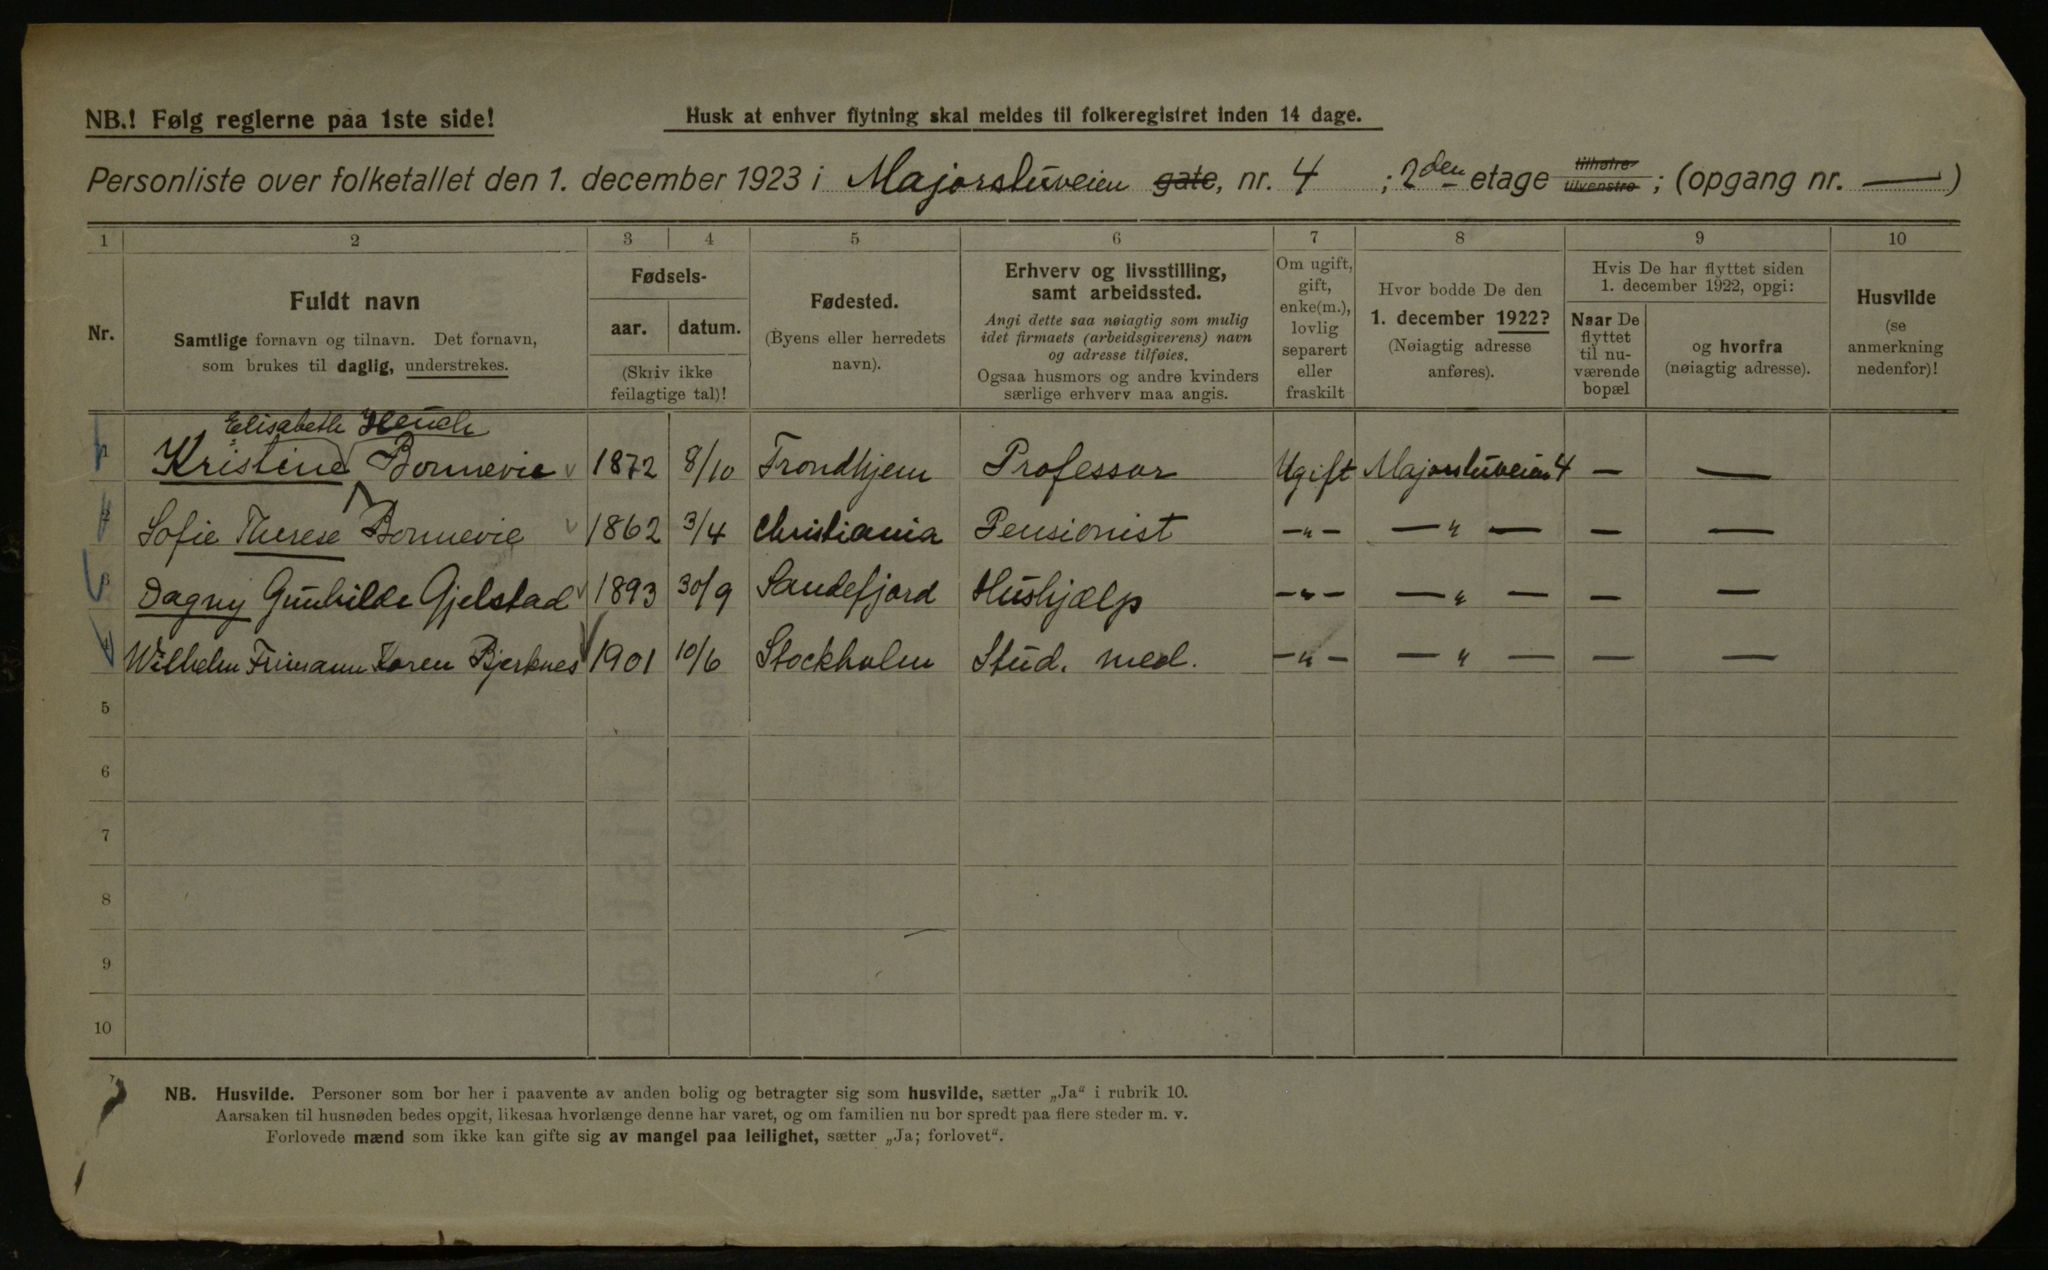 NB.! Følg reglerne paa 1ste side!
Husk at enhver flytning skal meldes til folkeregistret inden 14 dage.
Personliste over folketallet den 1. december 1923 i Majorstuveien gate, nr. 4 ; 2den etage tilhøire tilvenstre ; (opgang nr. — )
1 2 3 4 5 6 7 8 9 10
Nr.
Fuldt navn
Samtlige fornavn og tilnavn. Det fornavn,
som brukes til daglig, understrekes.
Fødsels-
aar. datum.
(Skriv ikke
feilagtige tal)!
Fødested.
(Byens eller herredets
navn).
Erhverv og livsstilling,
samt arbeidssted.
Angi dette saa nøiagtig som mulig
idet firmaets (arbeidsgiverens) navn
og adresse tilføies.
Ogsaa husmors og andre kvinders
særlige erhverv maa angis.
Om ugift,
gift,
enke(m.),
lovlig
separert
eller
fraskilt
Hvor bodde De den
1. december 1922?
(Nøiagtig adresse
anføres).
Hvis De har flyttet siden
1. december 1922, opgi:
Naar De
flyttet
til nu-
værende
bopæl
og hvorfra
(nøiagtig adresse).
Husvilde
(se
anmerkning
nedenfor)!
Elisabeth Heuch
1 Kristine Bonnevie 1872 8/10 Trondhjem Professor Ugift Majorstuveien 4 — —
2 Sofie Therese Bonnevie 1862 3/4 Christiania Pensionist —„— —„— — —
3 Dagny Gunhilde Gjelstad 1893 30/9 Sandefjord Hushjælp —„— —„— — —
4 Wilhelm Frimann Koren Bjerknes 1901 10/6 Stockholm Stud. med. —„— —„— — —
5
6
7
8
9
10
NB. Husvilde. Personer som bor her i paavente av anden bolig og betragter sig som husvilde, sætter „Ja“ i rubrik 10.
Aarsaken til husnøden bedes opgit, likesaa hvorlænge denne har varet, og om familien nu bor spredt paa flere steder m. v.
Forlovede mænd som ikke kan gifte sig av mangel paa leilighet, sætter „Ja; forlovet“.